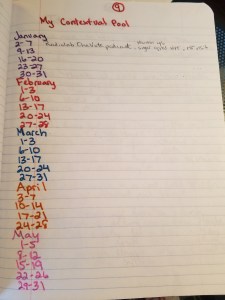 9
My Contextual Pool
January
2-7
9-13
16-20
23-27
30-31
February
1-3
6-10
13-17
20-24
27-28
March
1-3
6-10
13-17
20-24
27-31
April
3-7
10-14
17-21
24-28
May
1-5
8-12
15-19
22-26
29-31